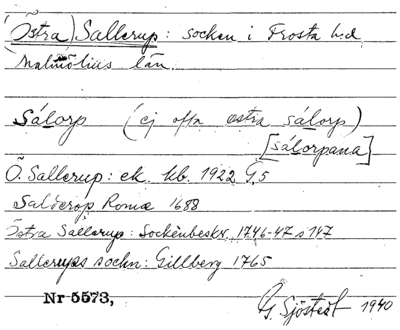 (Östra) Sallerup: socken i Frosta h.d
Malmöhus län.
Sálorp (ej ofta östra sálorp)
[sálorpana]
Ö. Sallerup: ek. kb. 1922 G,5
Salderop Romæ 1688
Östra Sallerup: Sockenbeskr. 1746-47 s 147
Sallerups sochn: Gillberg 1765
Nr 5573,
G. Sjöstedt 1940